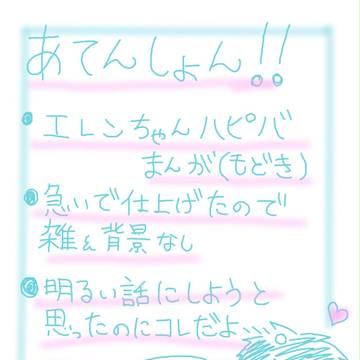 あてんしょん!!
• エレンちゃんハピバ
まんが(もどき)
• 急いで仕上げたので
雑&背景なし
• 明るい話にしようと
思ったのにコレだよ...